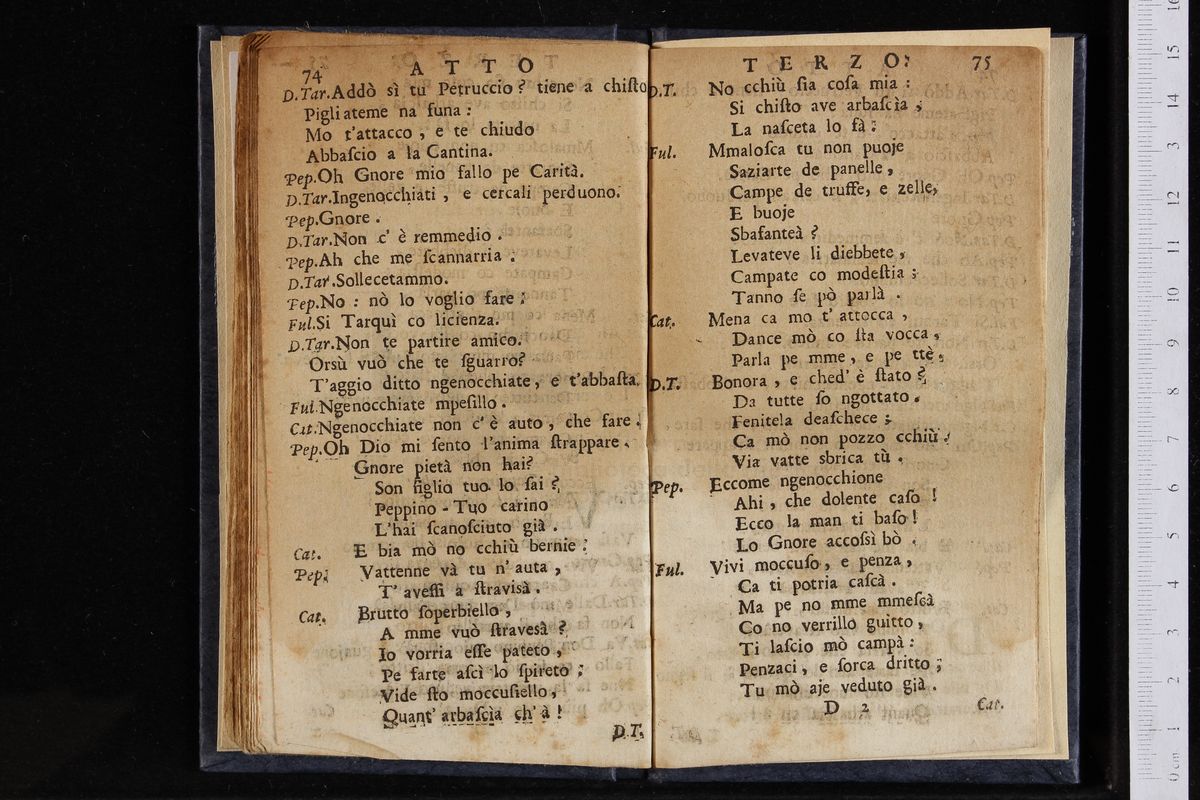 74 ATTO
D.Tar. Addò sì tu Petruccio? tiene a chiſto
Pigliateme na funa:
Mo t'attacco, e te chiudo
Abbaſcio a la Cantina.
Pep. Oh Gnore mio fallo pe Carità.
D.Tar. Ingenocchiati, e cercali perduono.
Pep. Gnore.
D.Tar. Non c' è remmedio.
Pep. Ah che me ſcannarria:
D.Tar. Sollecetammo.
Pep. No: nò lo voglio fare:
Ful. Si Tarquì co licienza.
D.Tar. Non te partire amico.
Orsù vuò che te ſguarro?
T'aggio ditto ngenocchiate, e t'abbaſta.
Ful. Ngenocchiate mpeſillo.
Cat. Ngenocchiate non c' è auto, che fare.
Pep. Oh Dio mi ſento l'anima ſtrappare.
Gnore pietà non hai?
Son figlio tuo lo ſai?
Peppino-Tuo carino
L'hai ſcanoſciuto già.
Cat. E bia mò no cchiù bernie:
Pep. Vattenne và tu n' auta,
T' aveſſi a ſtravisà.
Cat. Brutto ſoperbiello,
A mme vuò ſtravesà?
Io vorria eſſe pateto,
Pe farte aſcì lo ſpireto;
Vide ſto moccuſiello,
Quant' arbaſcìa ch' à!
D.T.
TERZO. 75
D.T. No cchiù ſia coſa mia:
Si chiſto ave arbaſcìa,
La naſceta lo fà:
Ful. Mmaloſca tu non puoje
Saziarte de panelle,
Campe de truffe, e zelle,
E buoje
Sbafanteà?
Levateve li diebbete,
Campate co modeſtia;
Tanno ſe pò parlà.
Cat. Mena ca mo t' attocca,
Dance mò co ſta vocca,
Parla pe mme, e pe ttè,
D.T. Bonora, e ched' è ſtato?
Da tutte ſo ngottato.
Fenitela deaſchece;
Ca mò non pozzo cchiù!
Via vatte sbrica tù.
Pep. Eccome ngenocchione
Ahi, che dolente caſo!
Ecco la man ti baſo!
Lo Gnore accoſsì bò.
Ful. Vivi moccuſo, e penza,
Ca ti potria caſcà.
Ma pe no mme mmeſcà
Co no verrillo guitto,
Ti laſcio mò campà:
Penzaci, e ſorca dritto;
Tu mò aje veduto già.
D 2 Cat.